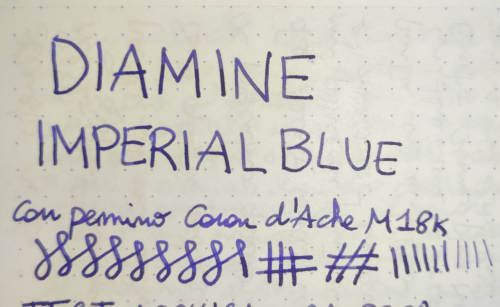 DIAMINE
IMPERIAL BLUE
con pennino Caran d'Ache M 18K
TEST